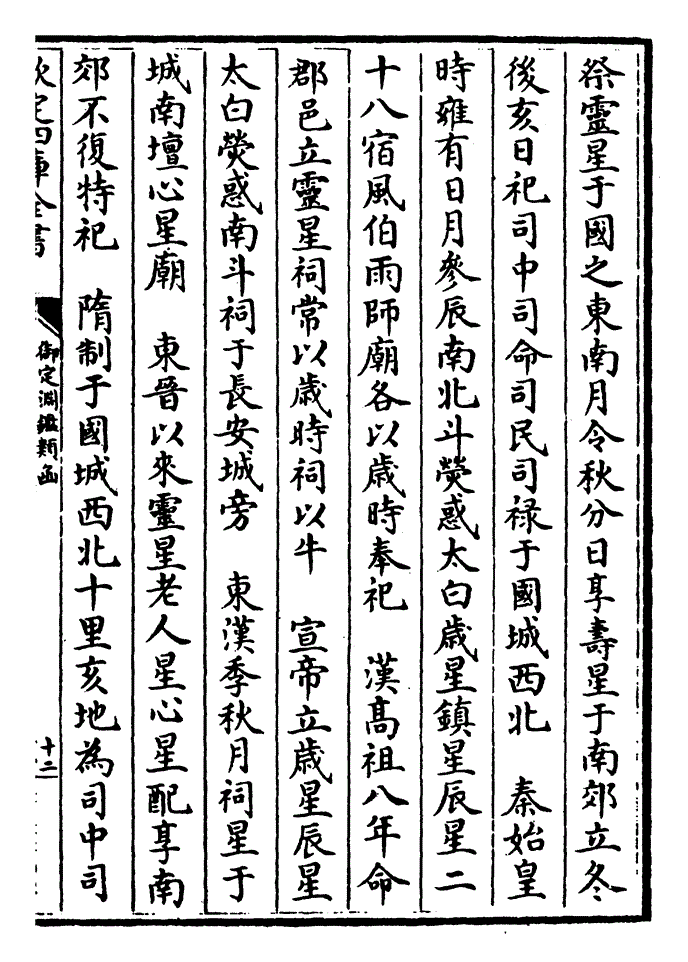 祭靈星于國之東南月令秋分日享壽星于南郊立冬
後亥日祀司中司命司民司祿于國城西北　秦始皇
時雍有日月參辰南北斗熒惑太白歲星鎮星辰星二
十八宿風伯雨師廟各以歲時奉祀　漢髙祖八年命
郡邑立靈星祠常以歲時祠以牛　宣帝立歲星辰星
太白熒惑南斗祠于長安城旁　東漢季秋月祠星于
城南壇心星廟　東晉以來靈星老人星心星配享南
郊不復特祀　隋制于國城西北十里亥地為司中司
欽定四庫全書
御定淵鑑類函
十二